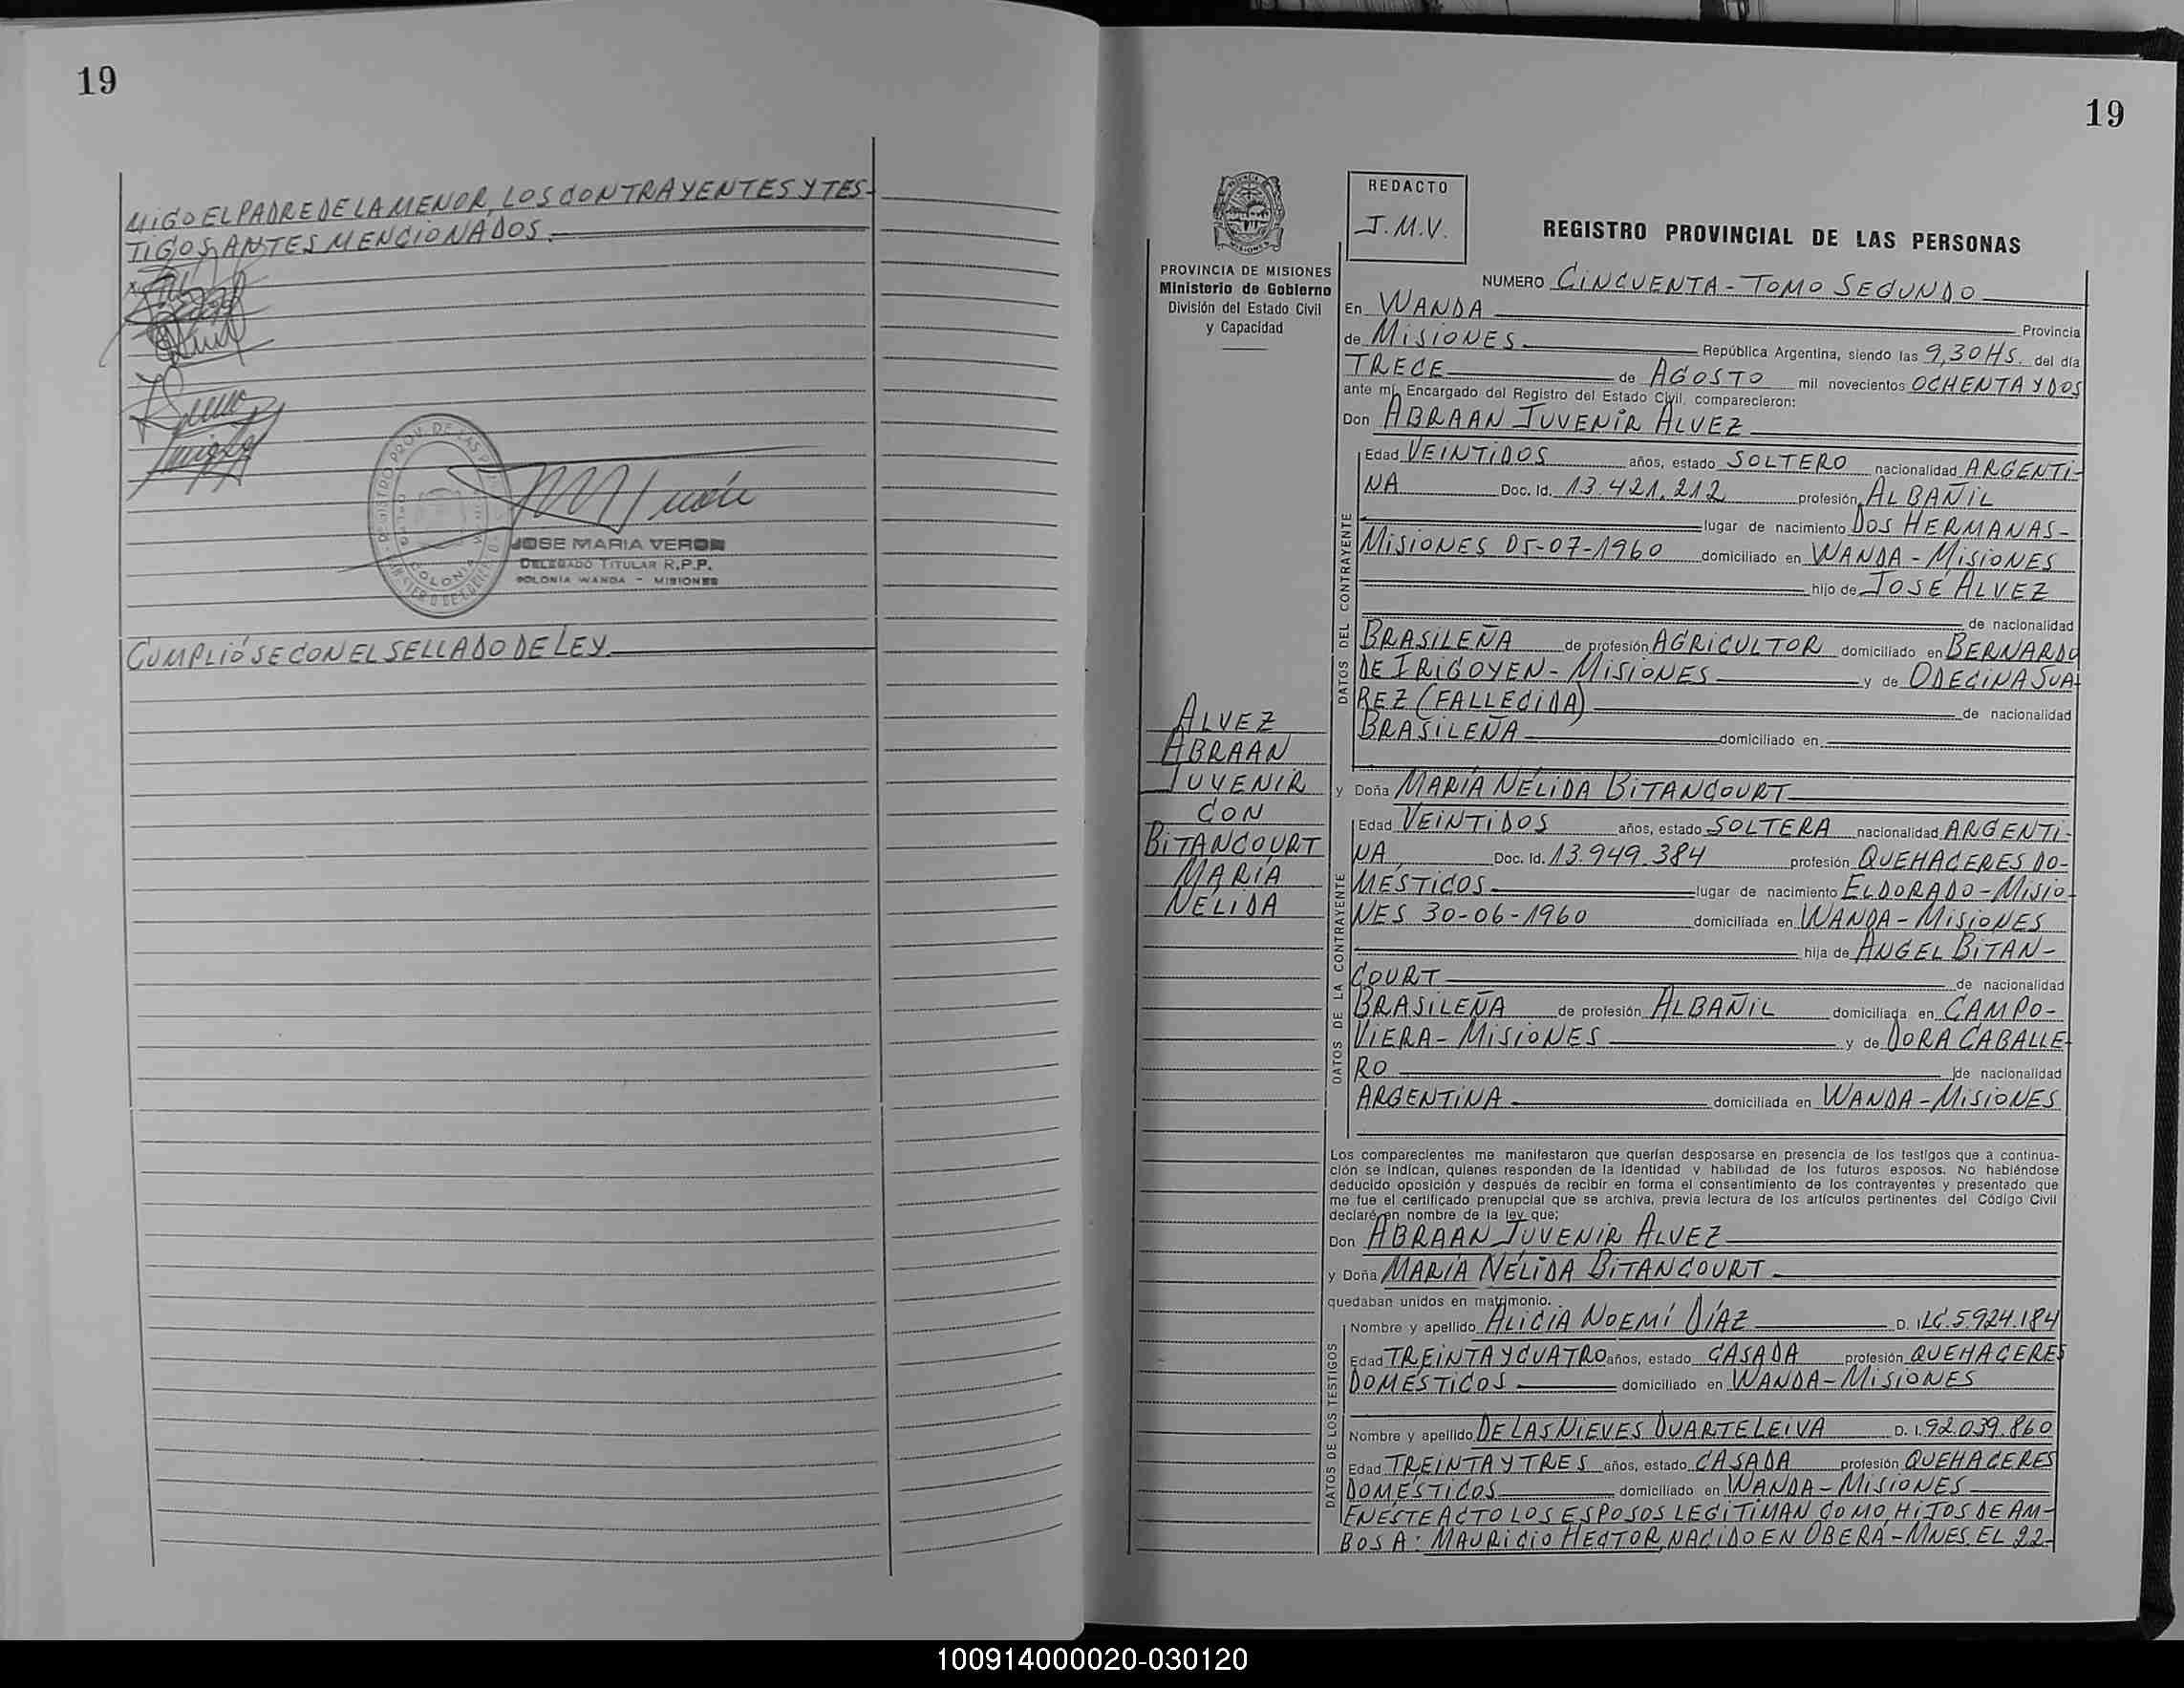 19
MIGO EL PADRE DE LA MENOR, LOS CONTRAYENTES Y TES-
TIGOS ANTES MENCIONADOS.
JOSE MARIA VERON
DELEGADO TITULAR R.P.P.
COLONIA WANDA - MISIONES
CUMPLIÓSE CON EL SELLADO DE LEY.
19
PROVINCIA DE MISIONES
Ministerio de Gobierno
División del Estado Civil
y Capacidad
REDACTO
J.M.V.
REGISTRO PROVINCIAL DE LAS PERSONAS
NUMERO CINCUENTA - TOMO SEGUNDO
En WANDA Provincia
de MISIONES República Argentina, siendo las 9,30 HS. del día
TRECE de AGOSTO mil novecientos OCHENTA Y DOS
ante mí, Encargado del Registro del Estado Civil, comparecieron:
Don ABRAAN JUVENIR ALVEZ
Edad VEINTIDOS años, estado SOLTERO nacionalidad ARGENTI-
NA Doc. Id. 13.421.212 profesión ALBAÑIL
lugar de nacimiento DOS HERMANAS-
MISIONES 05-07-1960 domiciliado en WANDA - MISIONES
hijo de JOSÉ ALVEZ
de nacionalidad
BRASILEÑA de profesión AGRICULTOR domiciliado en BERNARDO
DE IRIGOYEN - MISIONES y de ODECINA SUA-
REZ (FALLECIDA) de nacionalidad
BRASILEÑA domiciliado en
DATOS DEL CONTRAYENTE
ALVEZ
ABRAAN
JUVENIR
CON
BITANCOURT
MARÍA
NELIDA
y Doña MARÍA NÉLIDA BITANCOURT
Edad VEINTIDOS años, estado SOLTERA nacionalidad ARGENTI-
NA Doc. Id. 13.949.384 profesión QUEHACERES DO-
MÉSTICOS lugar de nacimiento ELDORADO - MISIO-
NES 30-06-1960 domiciliada en WANDA - MISIONES
hija de ANGEL BITAN-
COURT de nacionalidad
BRASILEÑA de profesión ALBAÑIL domiciliada en CAMPO-
VIERA - MISIONES y de DORA CABALLE-
RO de nacionalidad
ARGENTINA domiciliada en WANDA - MISIONES
DATOS DE LA CONTRAYENTE
Los comparecientes me manifestaron que querían desposarse en presencia de los testigos que a continua-
ción se indican, quienes responden de la identidad y habilidad de los futuros esposos. No habiéndose
deducido oposición y después de recibir en forma el consentimiento de los contrayentes y presentado que
me fue el certificado prenupcial que se archiva, previa lectura de los artículos pertinentes del Código Civil
declaré en nombre de la ley que:
Don ABRAAN JUVENIR ALVEZ
y Doña MARÍA NÉLIDA BITANCOURT
quedaban unidos en matrimonio.
Nombre y apellido ALICIA NOEMÍ DÍAZ D. I. LC. 5.924.184
Edad TREINTA Y CUATRO años, estado CASADA profesión QUEHACERES
DOMÉSTICOS domiciliado en WANDA - MISIONES
Nombre y apellido DE LAS NIEVES DUARTE LEIVA D. I. 92.039.860
Edad TREINTA Y TRES años, estado CASADA profesión QUEHACERES
DOMÉSTICOS domiciliado en WANDA - MISIONES
DATOS DE LOS TESTIGOS
EN ÉSTE ACTO LOS ESPOSOS LEGITIMAN COMO HIJOS DE AM-
BOS A: MAURICIO HECTOR, NACIDO EN OBERÁ - MNES. EL 22-
100914000020-030120